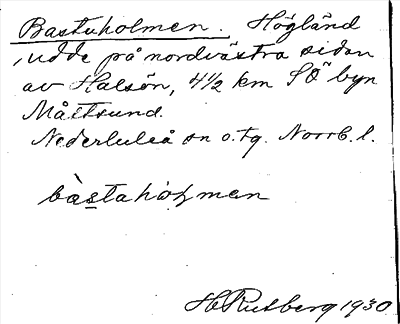 Bastuholmen. Högländ
udde på nordvästra sidan
av Halsön, 4½ km SÖ byn
Måttsund.
Nederluleå sn o. tg. Norrb. l.
bàstahòļmen
H Rutberg 1930